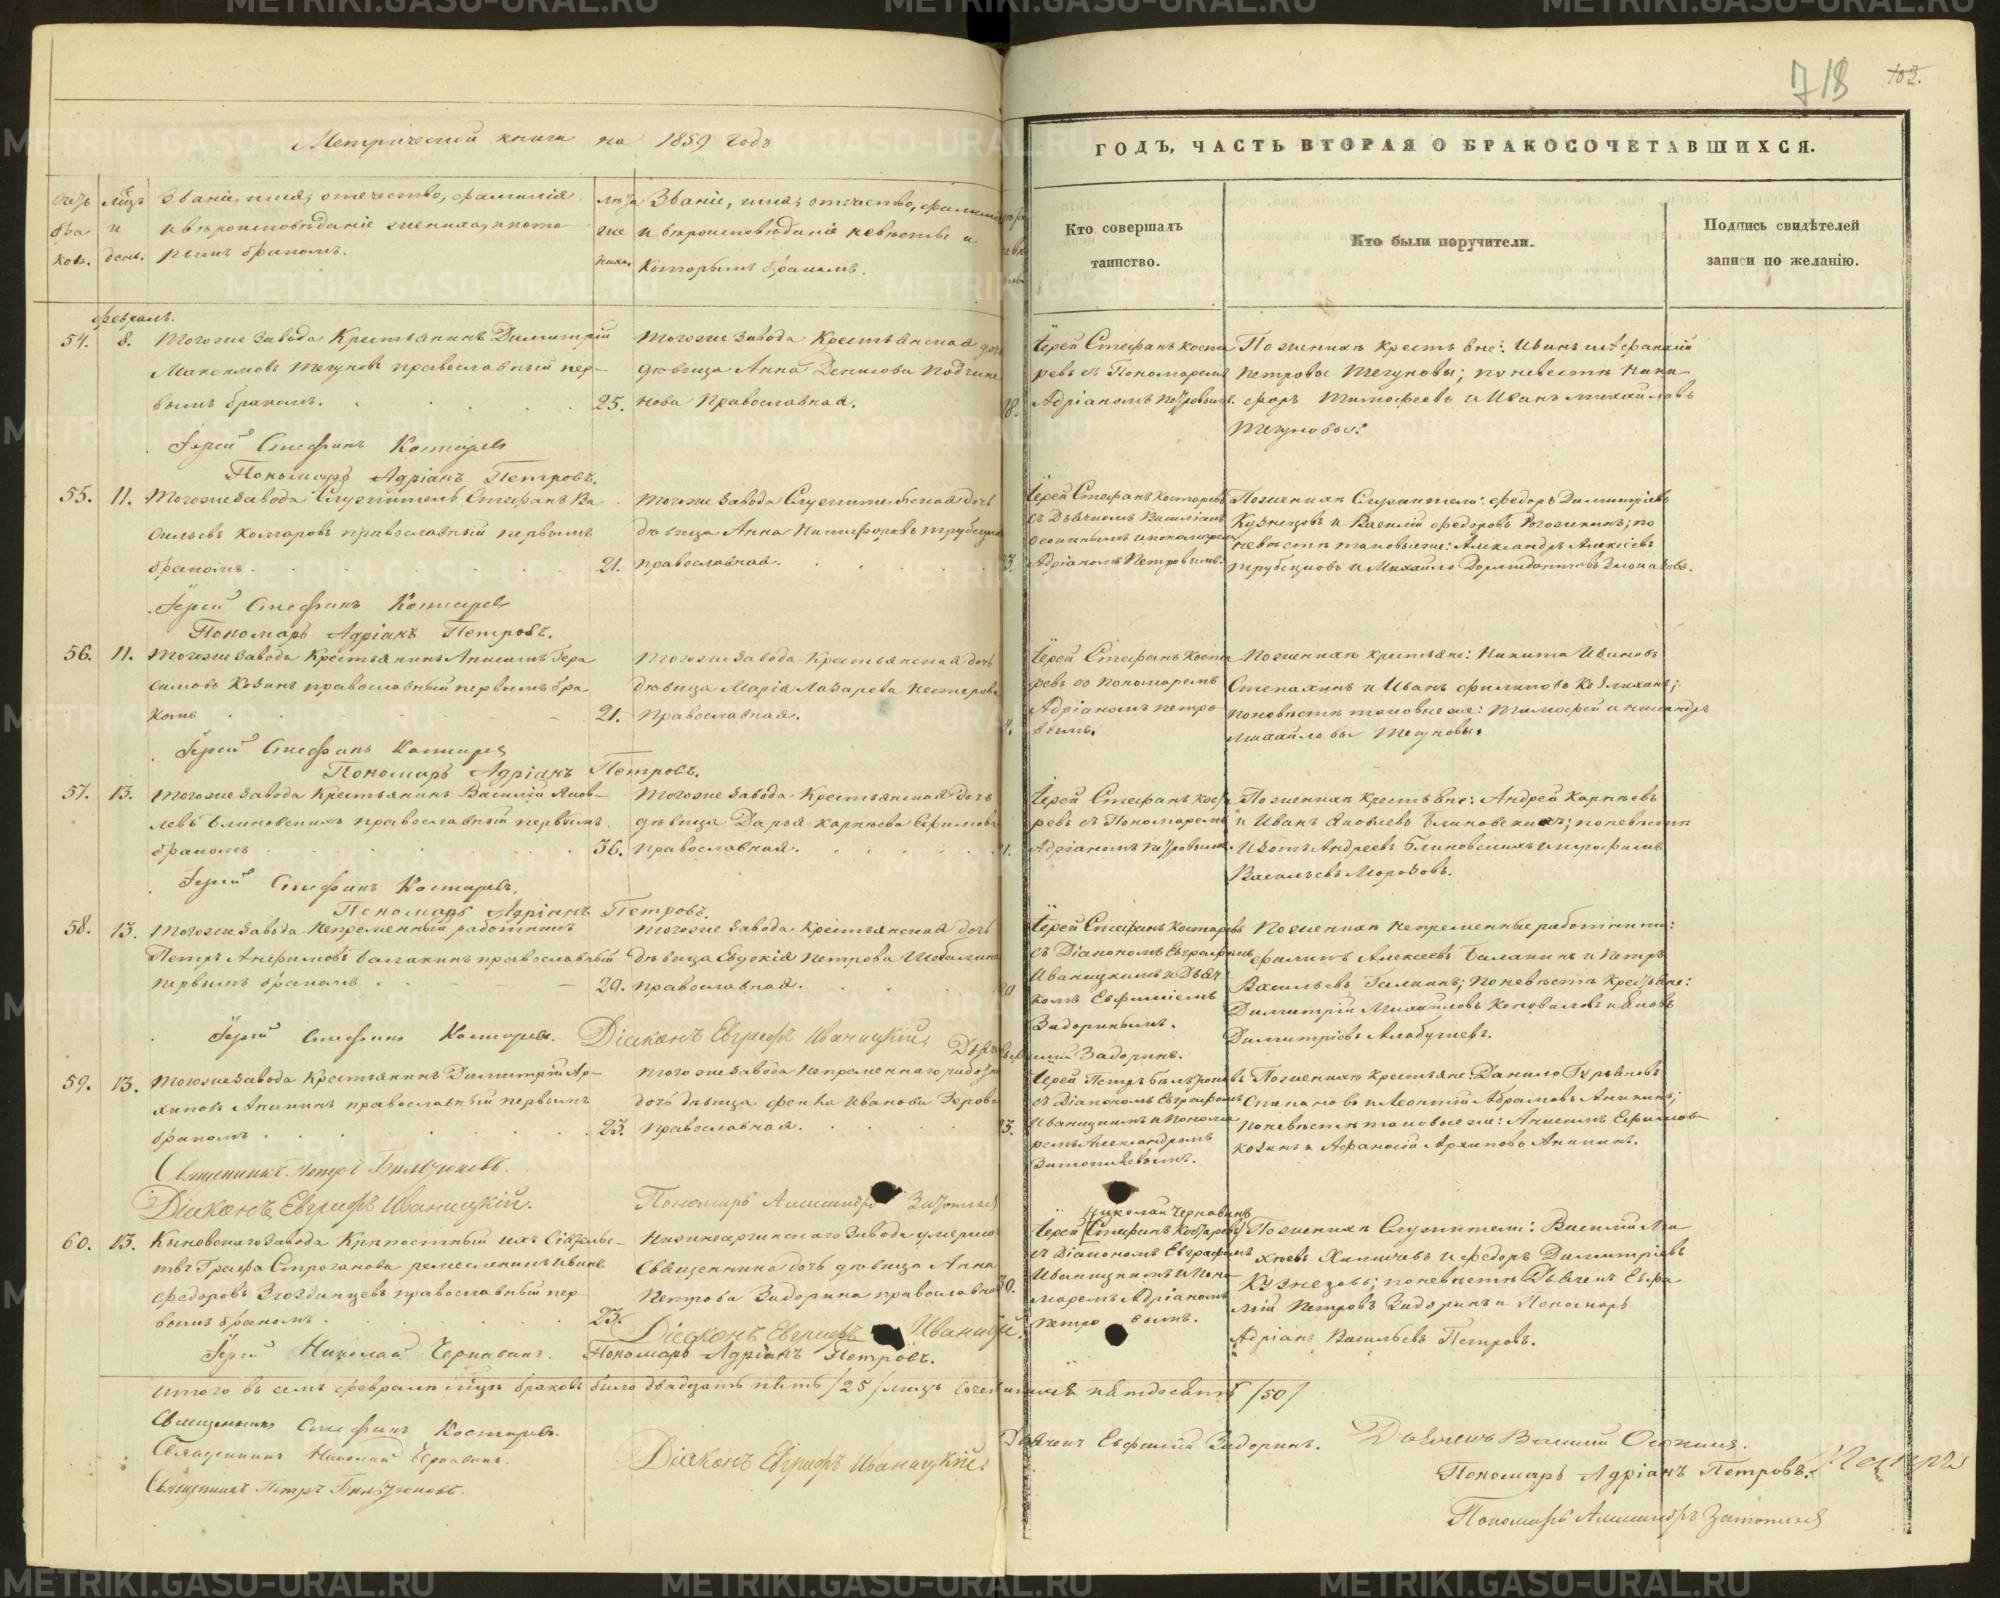 718 103.
Метрической книги на 1859 годъ
ГОДЪ, ЧАСТЬ ВТОРАЯ О БРАКОСОЧЕТАВШИХСЯ.
Счетъ браковъ.
Мѣсяцъ и день.
Званіе, имя, отечество, фамилія
и вѣроисповѣданіе жениха, и кото
рымъ бракомъ.
Лѣта жениха.
Званіе, имя, отчество, фамилія
и вѣроисповѣданіе невѣсты и
которымъ бракомъ.
Кто совершалъ
таинство.
Кто были поручители.
Подпись свидѣтелей
записи по желанію.
Февраль.
54. 8. Тогоже завода Крестьянинъ Димитрій
Максимовъ Тегуновъ православный пер-
вымъ бракомъ. 25.
Тогоже завода Крестьянская дочь
дѣвица Анна Денисова
Православная. 18.
Іерей Стефанъ Коста
ревъ съ Пономаремъ
Адріаномъ Петровымъ.
По женихѣ крестьяне: Иванъ и Афанасій
Петровы Тегуновы; по невестѣ Ники
форъ Тимофеевъ и Иванъ Михайловъ
Тегуновы.
Іерей Стефанъ Костаревъ
Пономарь Адріанъ Петровъ.
55. 11. Тогоже завода Служитель Стефанъ Ва
сильевъ Комаровъ православный первымъ
бракомъ. 21.
Тогоже завода Служительская дочь
дѣвица Анна Никифорова Трубецкова
православная. 23.
Іерей Стефанъ Костаревъ
съ Дьячкомъ Василіемъ
Осокинымъ и пономаремъ
Адріаномъ Петровымъ.
По женихѣ Служители: Федоръ Димитріевъ
Кузнецовъ и Василій Федоровъ Рогожкинъ; по
невѣстѣ таковыеже: Александръ Алексѣевъ
Трубецковъ и Михайло
Іерей Стефанъ Костаревъ
Пономарь Адріанъ Петровъ.
56. 11. Тогоже завода Крестьянинъ Анисимъ Гера
симовъ Козинъ православный первымъ бра
комъ 21.
Тогоже завода Крестьянская дочь
дѣвица Марія Лазарева Нестерова
Православная.
Іерей Стефанъ Коста
ревъ съ Пономаремъ
Адріаномъ Петро
вымъ.
По женихѣ крестьяне: Никита Ивановъ
Степахинъ и Иванъ Филиповъ
по невѣстѣ таковыеже: Тимофей и Никандръ
Михайловы Тегуновы.
Іерей Стефанъ Костаревъ
Пономарь Адріанъ Петровъ.
57. 13. Тогоже завода Крестьянинъ Василій Яков-
левъ Блиновскихъ православный первымъ
бракомъ 36.
Тогоже завода Крестьянская дочь
дѣвица Дарья Карнѣева Ефимова
православная.
Іерей Стефанъ Коста
ревъ съ Пономаремъ
Адріаномъ Петровымъ.
По женихѣ крестьяне: Андрей Карнѣевъ
и Иванъ Яковлевъ Блиновскихъ; по невѣстѣ
Изотъ Андреевъ Блиновскихъ и Трофимъ
Васильевъ Морозовъ.
Іерей Стефанъ Костаревъ.
Пономарь Адріанъ Петровъ.
58. 13. Тогоже завода Непременный работникъ
Петръ Анфимовъ Балакинъ православный
первымъ бракомъ 29.
Тогоже завода Крестьянская дочь
дѣвица Евдокія Петрова
православная. 20.
Іерей Стефанъ Костаревъ
съ Діакономъ Евграфомъ
Иваницкимъ и Дьяч
комъ Евфиміемъ
Задоринымъ.
По женихѣ непременные работники:
Филипъ Алексеевъ Балакинъ и Петръ
Васильевъ Галкинъ; по невѣстѣ Крестьяне:
Димитрій Михайловъ Коноваловъ и Яковъ
Димитріевъ Алабушевъ.
Іерей Стефанъ Костаревъ. Діаконъ Евграфъ Иваницкій. Дьячекъ Евфимій Задоринъ.
59. 13. Тогоже завода Крестьянинъ Димитрій Ар-
хиповъ Аникинъ православный первымъ
бракомъ. 23.
Тогоже завода Непременнаго работн
дочь дѣвица Фекла Иванова Зерова
православная. 23.
Іерей Петръ Бѣльтюковъ
съ Діакономъ Евграфомъ
Иваницкимъ и Понома
ремъ Александромъ
Затопляевымъ.
По женихѣ крестьяне: Данило Гурьяновъ
и Леонтій Абрамовъ Аникинъ;
по невѣстѣ таковыеже: Анисимъ Ефимовъ
Козинъ и Афанасій Архиповъ Аникинъ.
Священникъ Петръ Бѣльтюковъ.
Діаконъ Евграфъ Иваницкій. Пономарь Александръ
60. 13. Кыновскаго завода Крѣпостный ихъ Сіятельс-
твъ Графа Строганова ремесленникъ Иванъ
Федоровъ православный пер-
вымъ бракомъ. 23.
Нижнесергинскаго Завода умершаго
Священника дочь дѣвица Анна
Петрова Задорина православная 30.
Николай Чернавинъ
Іерей Стефанъ Костаревъ
съ Діакономъ Евграфомъ
Иваницкимъ и Поно-
маремъ Адріаномъ
Петровымъ.
По женихѣ Служители: Василій
и Федоръ Димитріевъ
Кузнецовъ; по невѣстѣ Дьячекъ Евфи
мій Петровъ Задоринъ и Пономарь
Адріанъ Васильевъ Петровъ.
Діаконъ Евграфъ Иваницкій.
Іерей Николай Чернавинъ. Пономарь Адріанъ Петровъ.
Итого въ семъ февралѣ мѣсяцѣ браковъ было двадцать пять /25/ лицъ сочетавшихся пятдесятъ /50/
Священникъ Стефанъ Костаревъ.
Священникъ Николай Чернавинъ.
Священникъ Петръ Бѣльтюковъ.
Діаконъ Евграфъ Иваницкій.
Дьячекъ Евфимій Задоринъ. Дьячекъ Василій Осокинъ.
Пономарь Адріанъ Петровъ.
Пономарь Александръ
METRIKI.GASO-URAL.RU